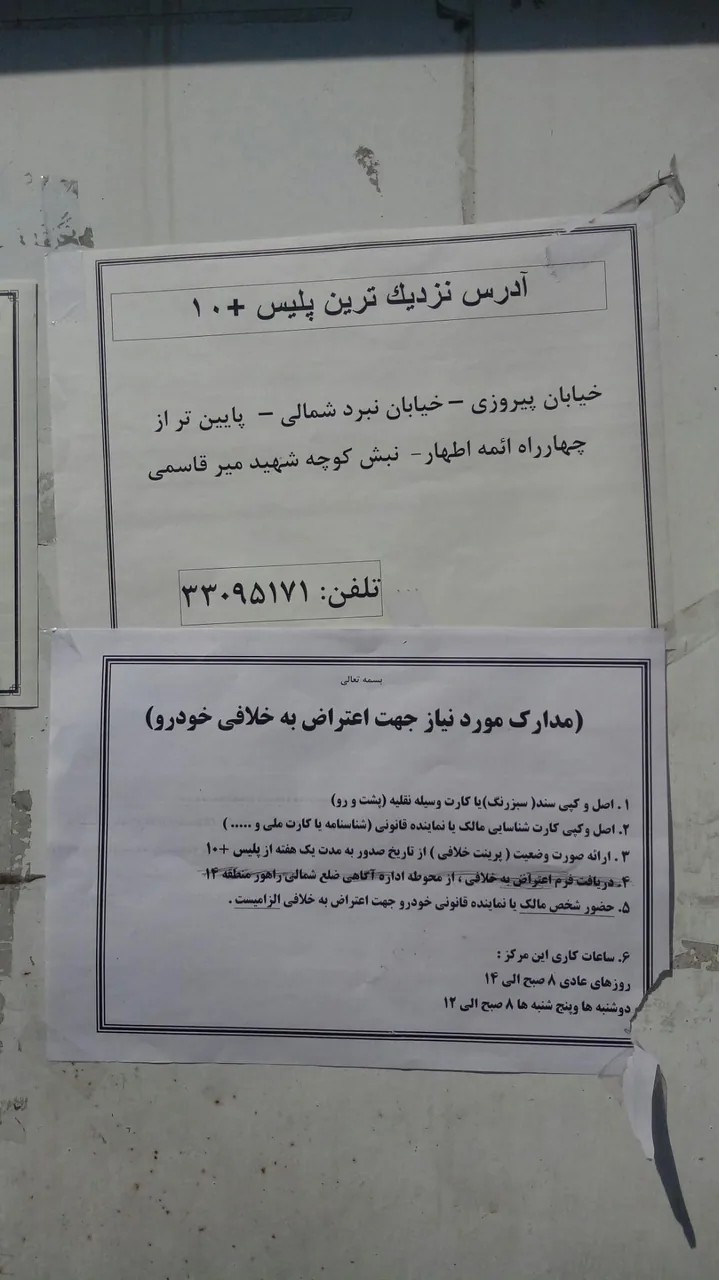 آدرس نزدیك ترین پلیس +۱۰
خیابان پیروزی – خیابان نبرد شمالی – پایین تر از
چهارراه ائمه اطهار- نبش کوچه شهید میر قاسمی
تلفن: ۳۳۰۹۵۱۷۱
بسمه تعالی
(مدارک مورد نیاز جهت اعتراض به خلافی خودرو)
۱. اصل و کپی سند( سبزرنگ)یا کارت وسیله نقلیه (پشت و رو)
۲. اصل وکپی کارت شناسایی مالک یا نماینده قانونی (شناسنامه یا کارت ملی و ..... )
۳ . ارائه صورت وضعیت ( پرینت خلافی ) از تاریخ صدور به مدت یک هفته از پلیس +۱۰
۴. دریافت فرم اعتراض به خلافی ، از محوطه اداره آگاهی ضلع شمالی راهور منطقه ۱۴
۵. حضور شخص مالک یا نماینده قانونی خودرو جهت اعتراض به خلافی الزامیست .
۶. ساعات کاری این مرکز :
روزهای عادی ۸ صبح الی ۱۴
دوشنبه ها وپنج شنبه ها ۸ صبح الی ۱۲